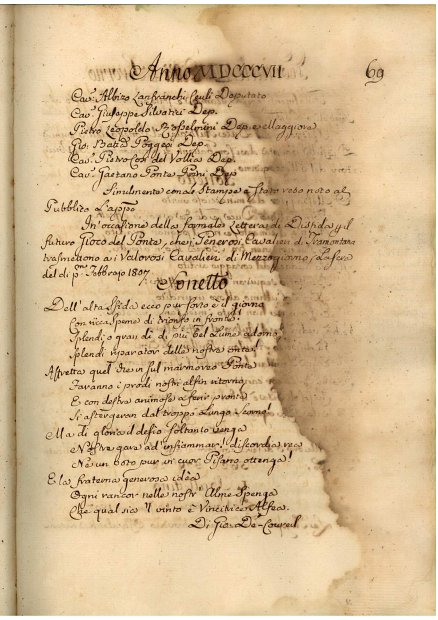 Anno MDCCCVII
69
Cav. Albizo Lanfranchi Ceuli Deputato
Cav. Giuseppe Silvatici Dep.
Pietro Leopoldo Rosselmini Dep. e Maggiore
Gio. Batta Poggesi Dep.
Cav. Pietro Del Vollia Dep.
Cav. Gaetano Ponte Porni Dep.
Simulmente con le Stampe è Stato reso noto al
Pubblico L'appo
In occasione della formale Lettera di Disfida pel
futuro Gioco del Ponte, che i Generosi Cavalieri di Tramontana
trasmettono ai Valorosi Cavalieri di Mezzogiorno, La sera
del dì pmo Febbrajo 1807
Sonetto
Dell'alta Sfida ecco pur sorto è il giorno
Con viva Spene di trionfo in fronte!
Splendi o gran dì di più bel Lume adorno
Splendi riparator delle nostre onte!
Affretta quel dì che in sul marmoreo Ponte
Faranno i prodi nostri alfin ritorno
E con destra animosa a ferir pronta
Si astergeran dal troppo Lungo Scorno
Ma di gloria il desio soltanto venga
Nostre gare ad infiammar! discordia rea
Nè un voto pur in cuor Pisano ottenga!
E la fraterna generosa idèa
Ogni rancor nelle nostr'Alme Spenga
Che qual sia 'l vinto è Vincitrice Alfea.
Di Gio. De-Coureil